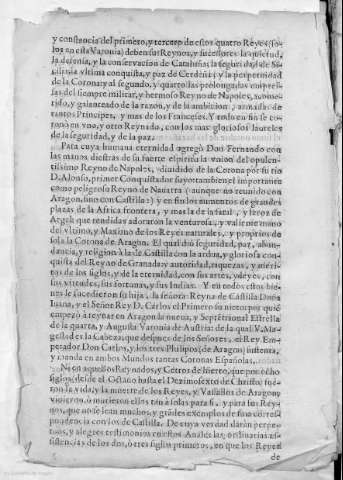 y constancia del primero, y tercero de estos quatro Reyes (so-
los en esta Varonia) deben sus Reynos, y sucessores la quietud,
la defensa, y la conservacion de Cataluña; la seguridad de Si-
cilia; la vltima conquista, y paz de Cerdeña; y la perpetuidad
de la Corona: y al segundo, y quarto las prolongadas empres-
sas del siempre militar, y hermoso Reyno de Napoles,
tido, y galanteado de la razon, y de la ambicion, armadas de
tantos Principes, y mas de los Franceses. Y todo en fin se co-
ronò en vno, y otro Reynado, con los mas gloriosos laureles
de la seguridad, y de la paz.
Para cuya humana eternidad agregò Don Fernando con
las manos diestras de su fuerte espiritu la vnion del opulen-
tissimo Reyno de Napoles, dividido de la Corona por su tio
D. Alonso, primer Conquistador suyo: tambien el importante
como peligroso Reyno de Navarra (aunque no reunido con
Aragon, sino con Castilla:) y en fin los aumentos de grandes
plazas de la Africa frontera, y mas la de la fatal, y feroz de
Argel: que rendidas adoraron la venturosa, y valiente mano
del vltimo, y Maximo de los Reyes naturales, y propios de
sola la Corona de Aragon. El qual diò seguridad, paz, abun-
dancia, y religion à la de Castilla con la ardua, y gloriosa con-
quista del Reyno de Granada: y autoridad, riquezas, y admira-
de los siglos, y de la eternidad, con sus artes, y leyes, con
sus virtudes, sus fortunas, y sus Indias. Y en todos estos bie-
nes le sucedieron su hija, la señora Reyna de Castilla Doña
Iuana, y el Señor Rey D. Carlos el Primero su nieto: por quiẽ
empezò à reynar en Aragon la nueva, y Septẽtrional Estrella
de la quarta, y Augusta Varonia de Austria: de la qual V. Ma-
gestad es la Cabeza, que despues de los Señores, el Rey Em-
perador Don Carlos, y los tres Philipos, à Aragon sustenta,
y manda en ambos Mundos tantas Coronas Españolas.
Ni en aquellos Reynados, y Cetros de hierro, que por ocho
siglos, desde el Octavo hasta el Dezimosexto de Christo, fue-
ron la vida, y la muerte de los Reyes, y Vassallos de Aragon;
vivieron, ò murieron ellos tan à solas para si, y para sus Rey-
nos, que no se lean muchos, y grãdes exemplos de fino corres-
pondencia con los de Castilla. De cuya verdad daràn perpe-
tuos, y alegres testimonios en estos Anales las ordinarias as-
sistencias de los dos, ò tres siglos primeros, en que los Reyes
de